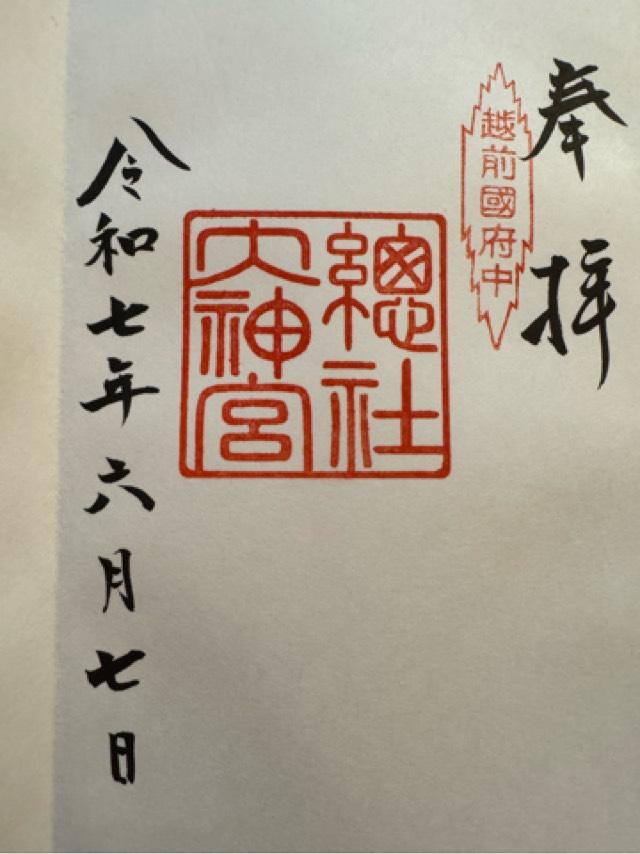 奉拝
越前國府中
總社
大神宮
令和七年六月七日